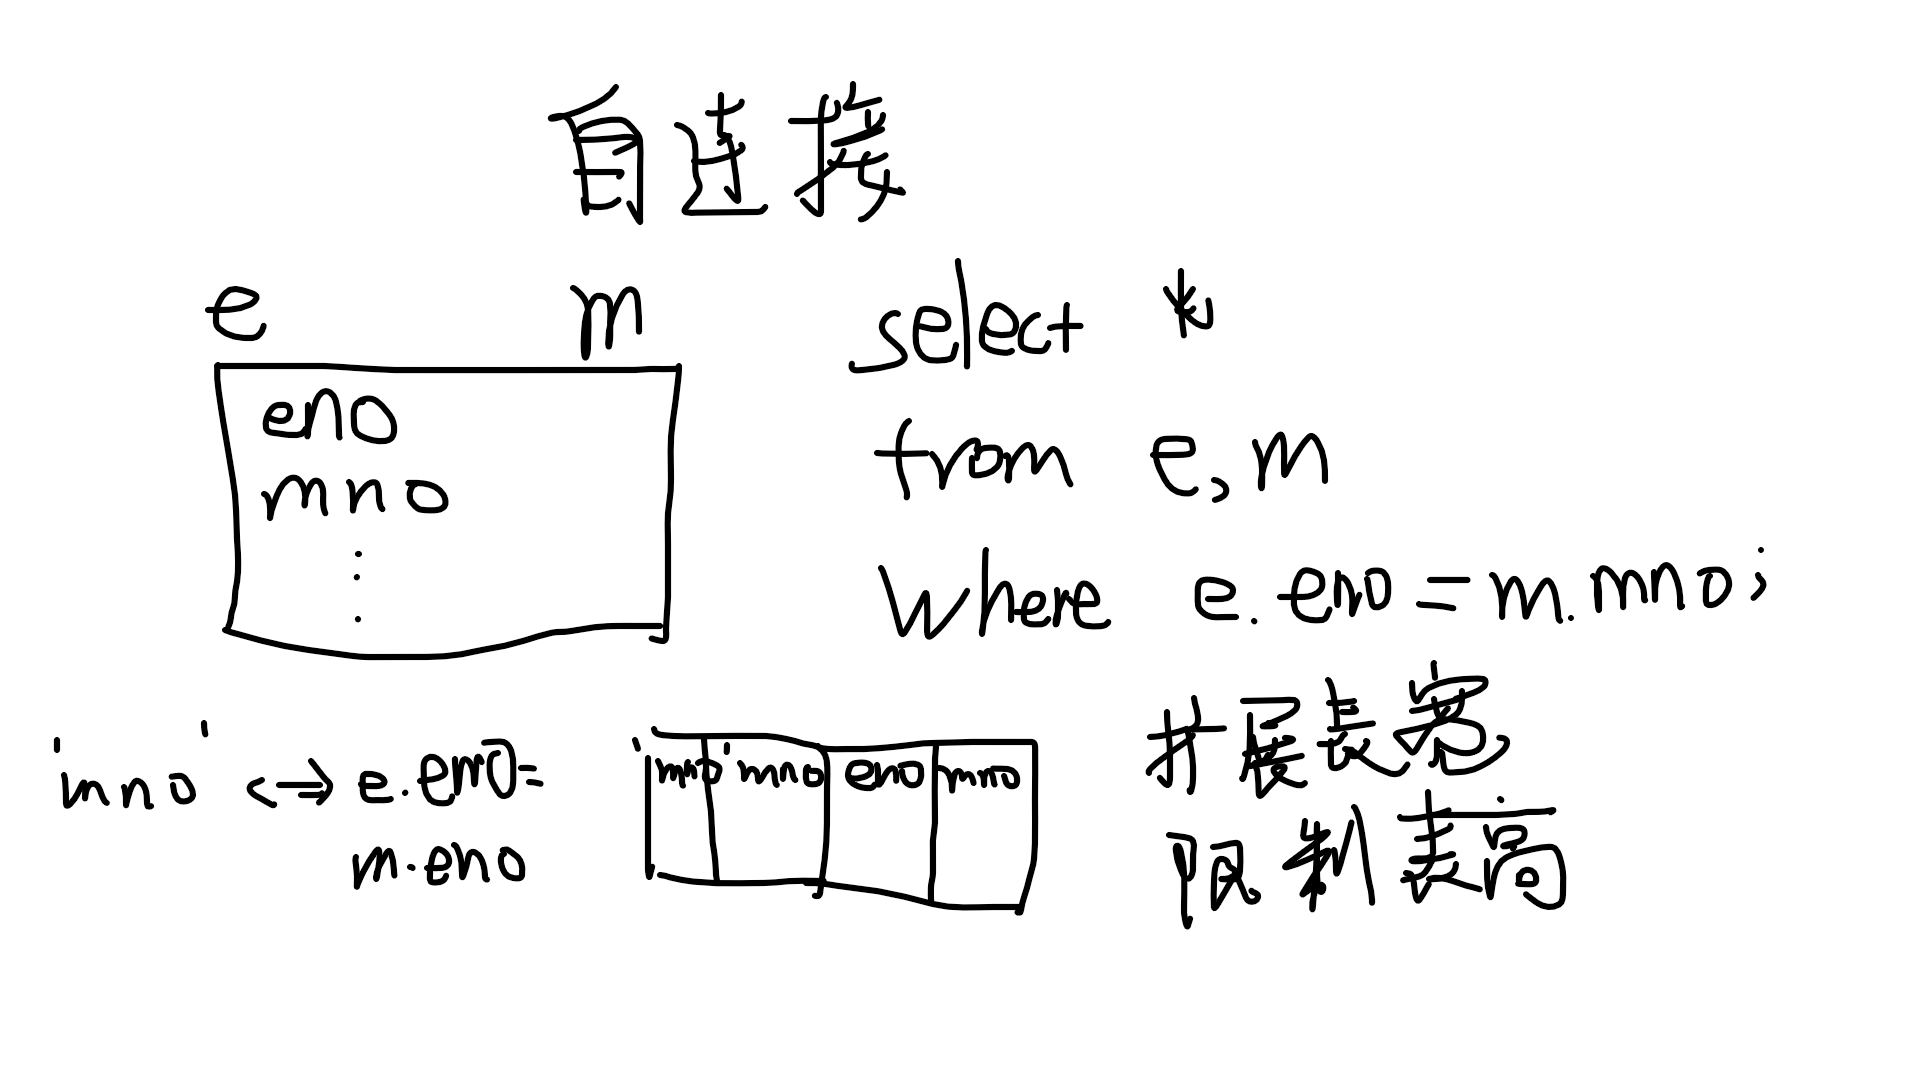 自连接
e m
select *
from e, m
where e.eno = m.mno;
eno
mno
'mno' <=> e.eno=
m.eno
'mno' mno eno mno
扩展表宽
限制表高